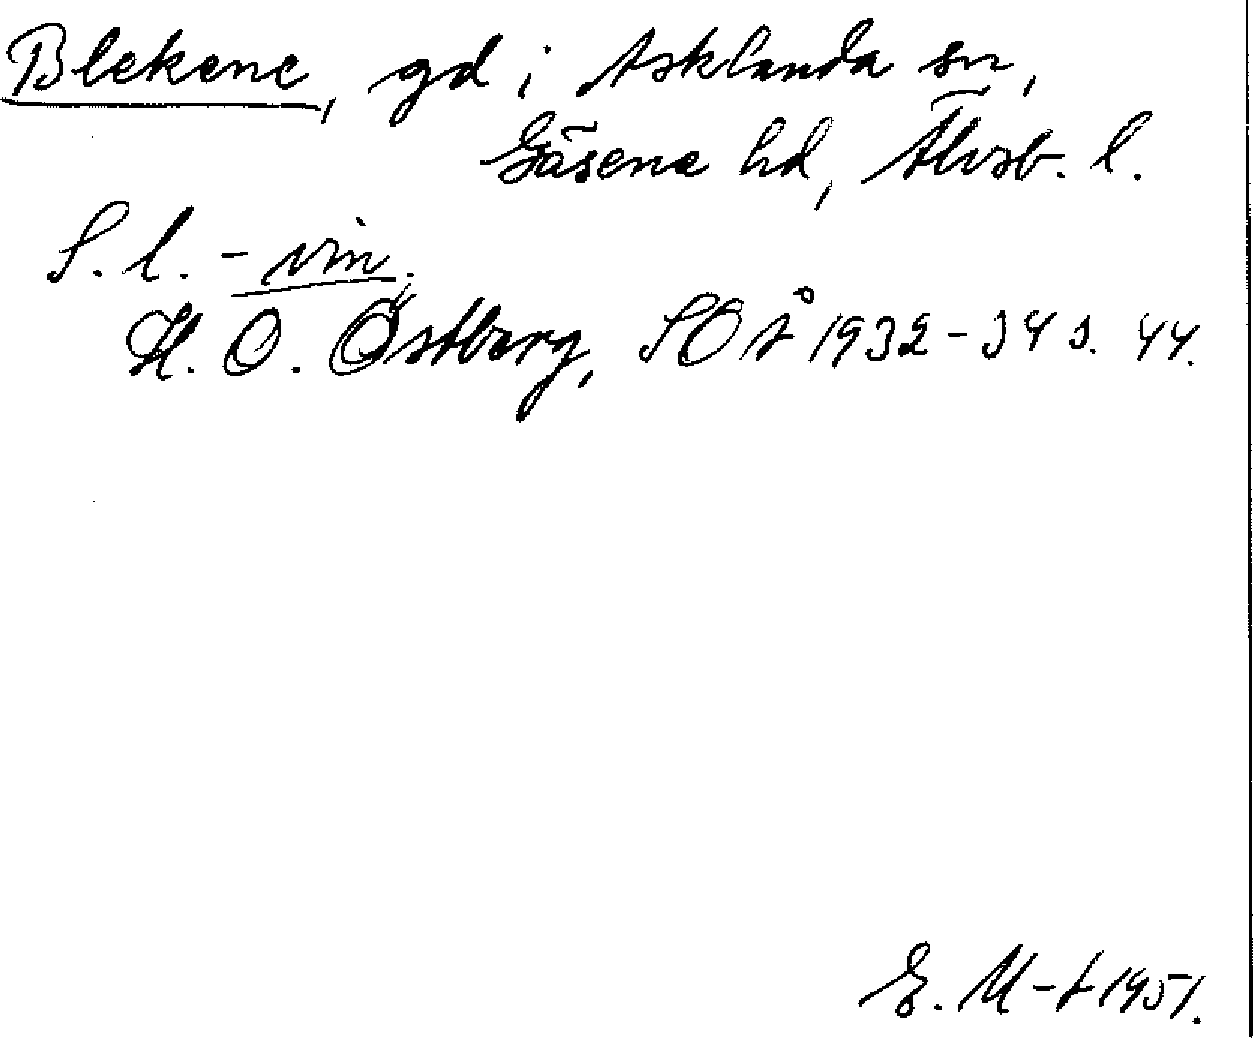 Blekene, gd i Asklanda sn,
Gäsene hd, Älvsb. l.
S. l. - vin.
H. O. Östberg, SOÅ 1932-34 s. 44.
E. M-t 1951.